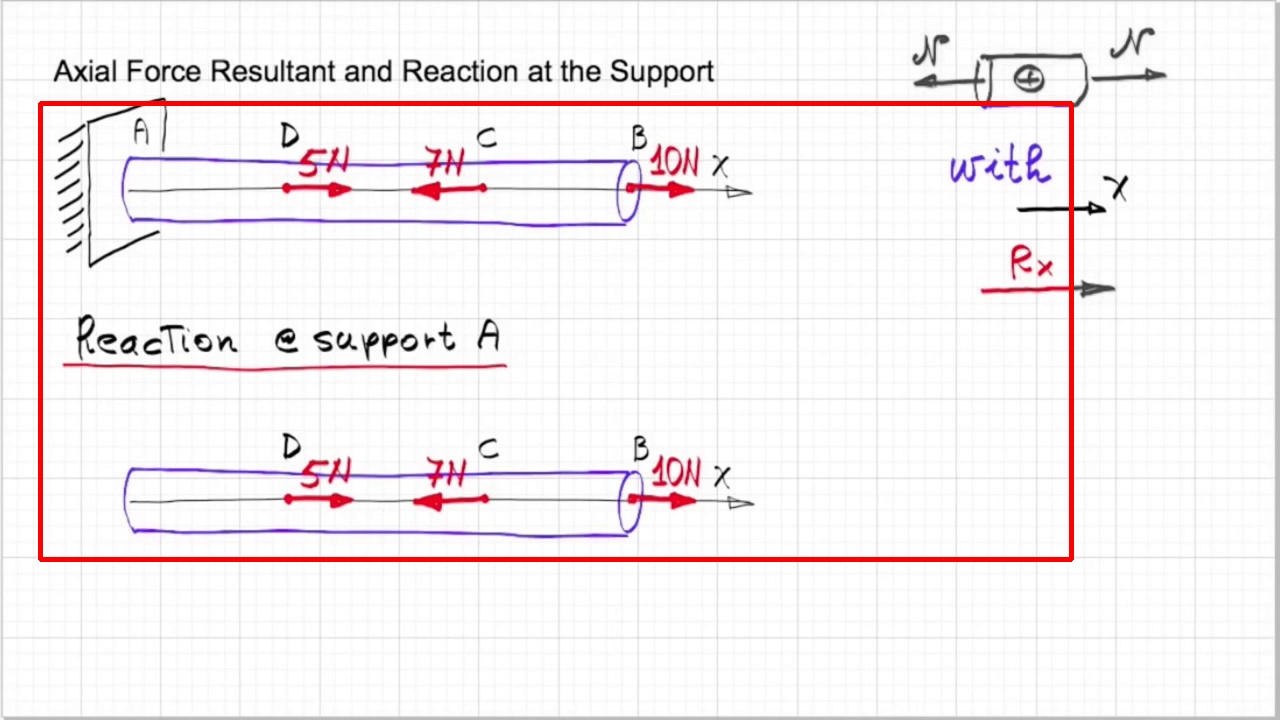 Axial Force Resultant and Reaction at the Support
N + N
A D 5N 7N C B 10N X
with
X
Rx
Reaction @ support A
D 5N 7N C B 10N X